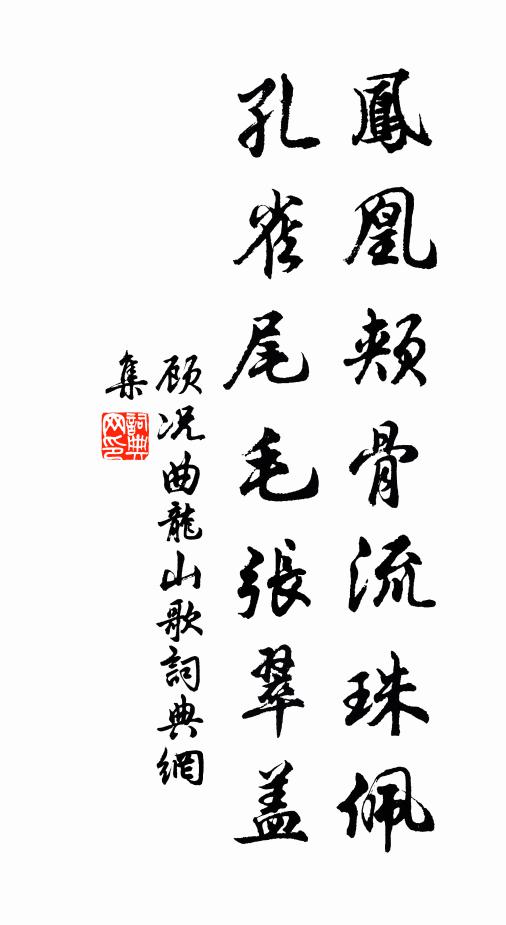 鳳凰頰骨流珠佩
孔雀尾毛張翠盖
顾况曲龍山歌詞典網
集
詞典
网印